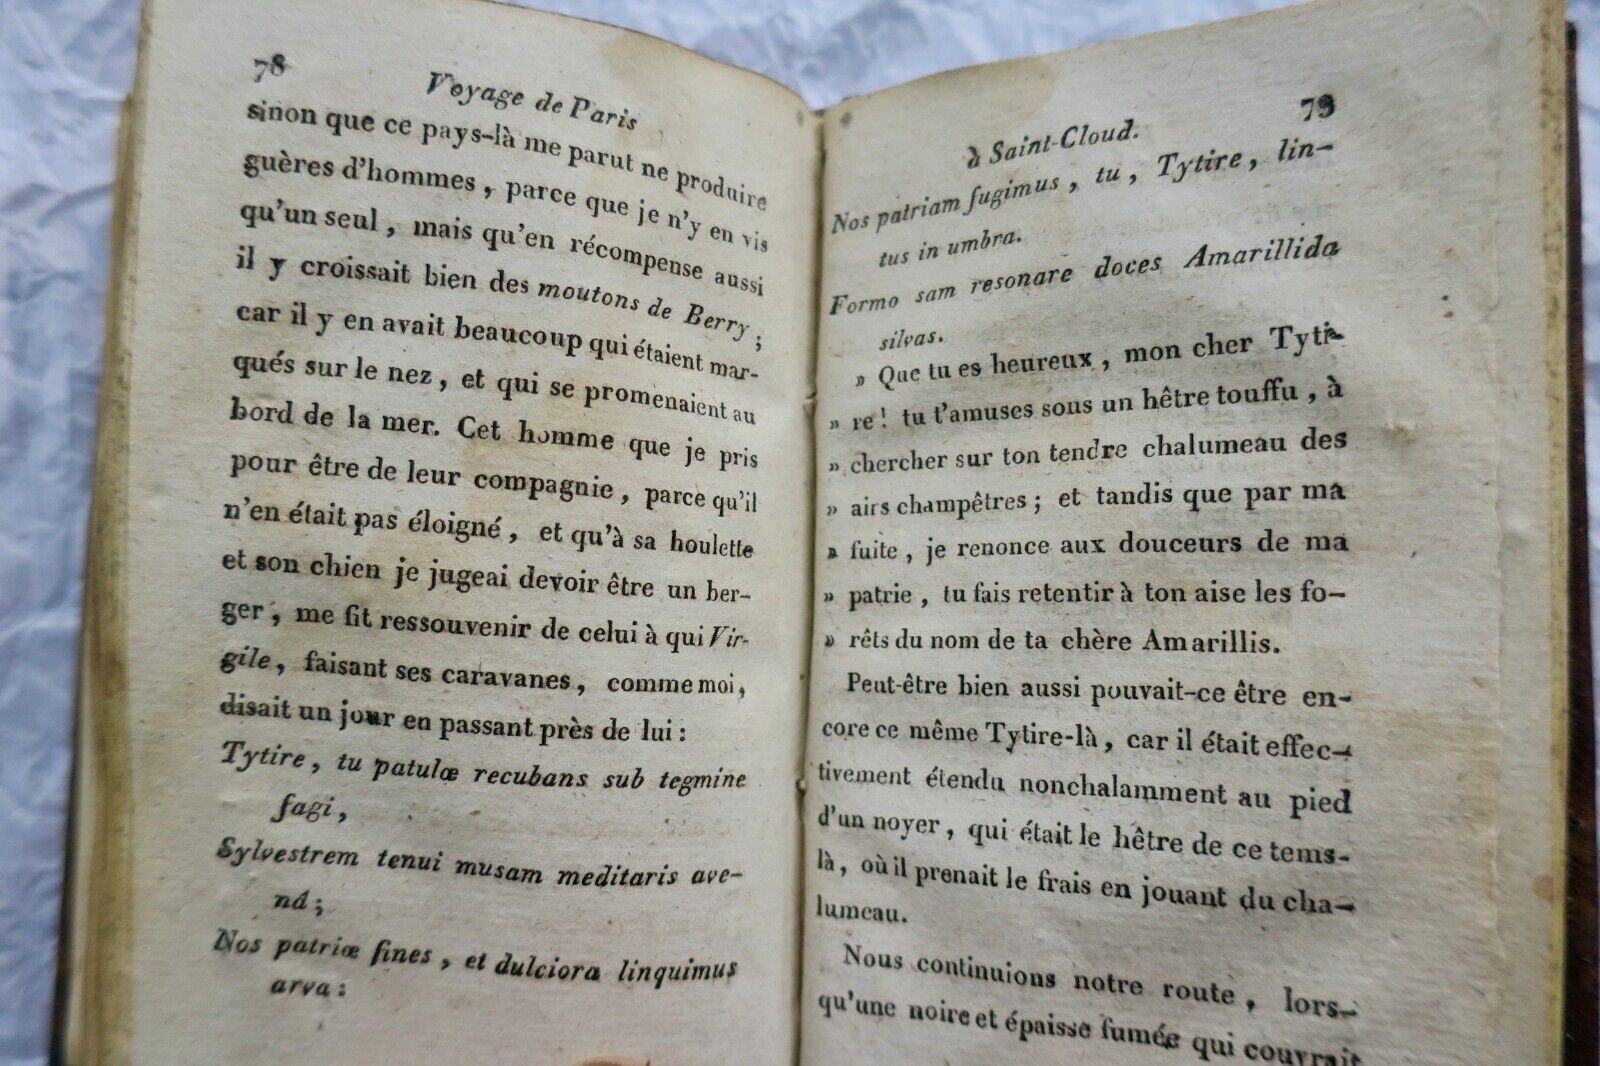 78
Voyage de Paris
sinon que ce pays-là me parut ne produire
guères d'hommes, parce que je n'y en vis
qu'un seul, mais qu'en récompense aussi
il y croissait bien des moutons de Berry;
car il y en avait beaucoup qui étaient mar-
qués sur le nez, et qui se promenaient au
bord de la mer. Cet homme que je pris
pour être de leur compagnie, parce qu'il
n'en était pas éloigné, et qu'à sa houlette
et son chien je jugeai devoir être un ber-
ger, me fit ressouvenir de celui à qui Vir-
gile, faisant ses caravanes, comme moi,
disait un jour en passant près de lui:
Tytire, tu patulæ recubans sub tegmine
fagi,
Sylvestrem tenui musam meditaris ave-
nâ;
Nos patriæ fines, et dulciora linquimus
arva:
à Saint-Cloud.
79
Nos patriam fugimus, tu, Tytire, lin-
tus in umbra.
Formo sam resonare doces Amarillida
silvas.
» Que tu es heureux, mon cher Tyti-
» re! tu t'amuses sous un hêtre touffu, à
» chercher sur ton tendre chalumeau des
» airs champêtres; et tandis que par ma
» fuite, je renonce aux douceurs de ma
» patrie, tu fais retentir à ton aise les fo-
» rêts du nom de ta chère Amarillis.
Peut-être bien aussi pouvait-ce être en-
core ce même Tytire-là, car il était effec-
tivement étendu nonchalamment au pied
d'un noyer, qui était le hêtre de ce tems-
là, où il prenait le frais en jouant du cha-
lumeau.
Nous continuions notre route, lors-
qu'une noire et épaisse fumée qui couvrait